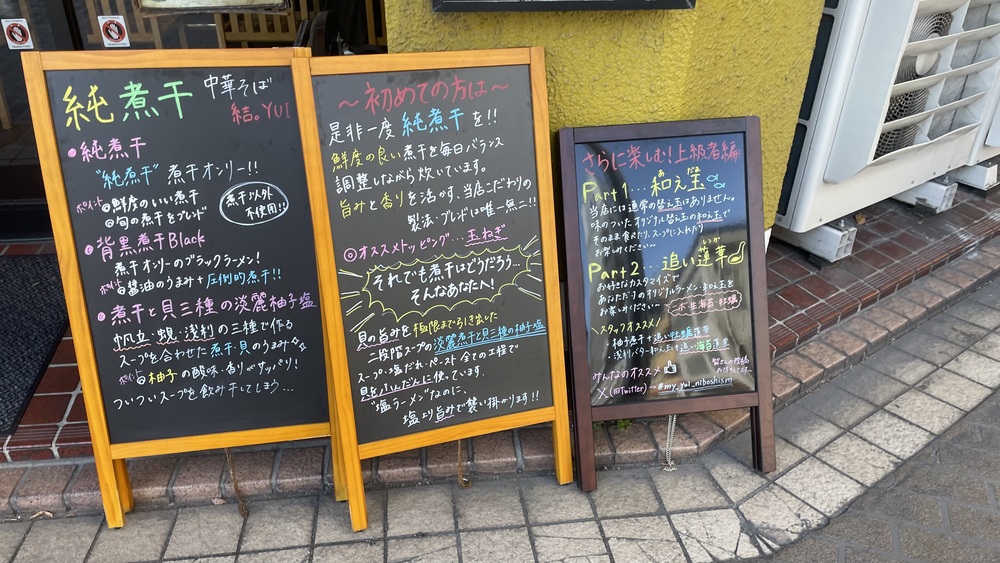 純煮干
中華そば
結。YUI
●純煮干
"純煮干" 煮干オンリー!!
ポイント◎鮮度のいい煮干
◎旬の煮干をブレンド
煮干以外
不使用!!
●背黒煮干Black
煮干オンリーのブラックラーメン!
ポイント◎醤油のうまみ+圧倒的煮干!!
●煮干と貝三種の淡麗柚子塩
帆立・蜆・浅利の三種で作る
スープを合わせた煮干・貝のうまみ
ポイント◎柚子の酸味・香りがサッパリ!
ついついスープを飲み干してしまう…
~初めての方は~
是非一度 純煮干を!!
鮮度の良い煮干を毎日バランス
調整しながら炊いています。
旨みと香りを活かす、当店こだわりの
製法・ブレンドは唯一無二!!
◎オススメトッピング…玉ねぎ
それでも煮干はどうだろう…
そんなあなたへ!
貝の旨みを極限まで引き出した
二段階スープの淡麗煮干と貝三種の柚子塩
スープ・塩だれ・ペースト全ての工程で
貝をふんだんに使っています。
"塩ラーメン"なのに、
塩より旨みで襲い掛かります!!
さらに楽しむ!上級者編
Part1…和え玉
当店には通常の替え玉はありません。
味のついたオリジナル替え玉の和え玉で
そのまま食べたり、スープに入れたり
お楽しみください~
Part2…追い蓮華
お好みなカスタマイズで
あなただけのオリジナルラーメン・和え玉を
お楽しみください
スタッフオススメ!
・柚子煮干+追い牡蠣蓮華
・浅利バター和え玉+追い海苔蓮華
みんなのオススメ
X(旧Twitter)→#my_yui_niboshism